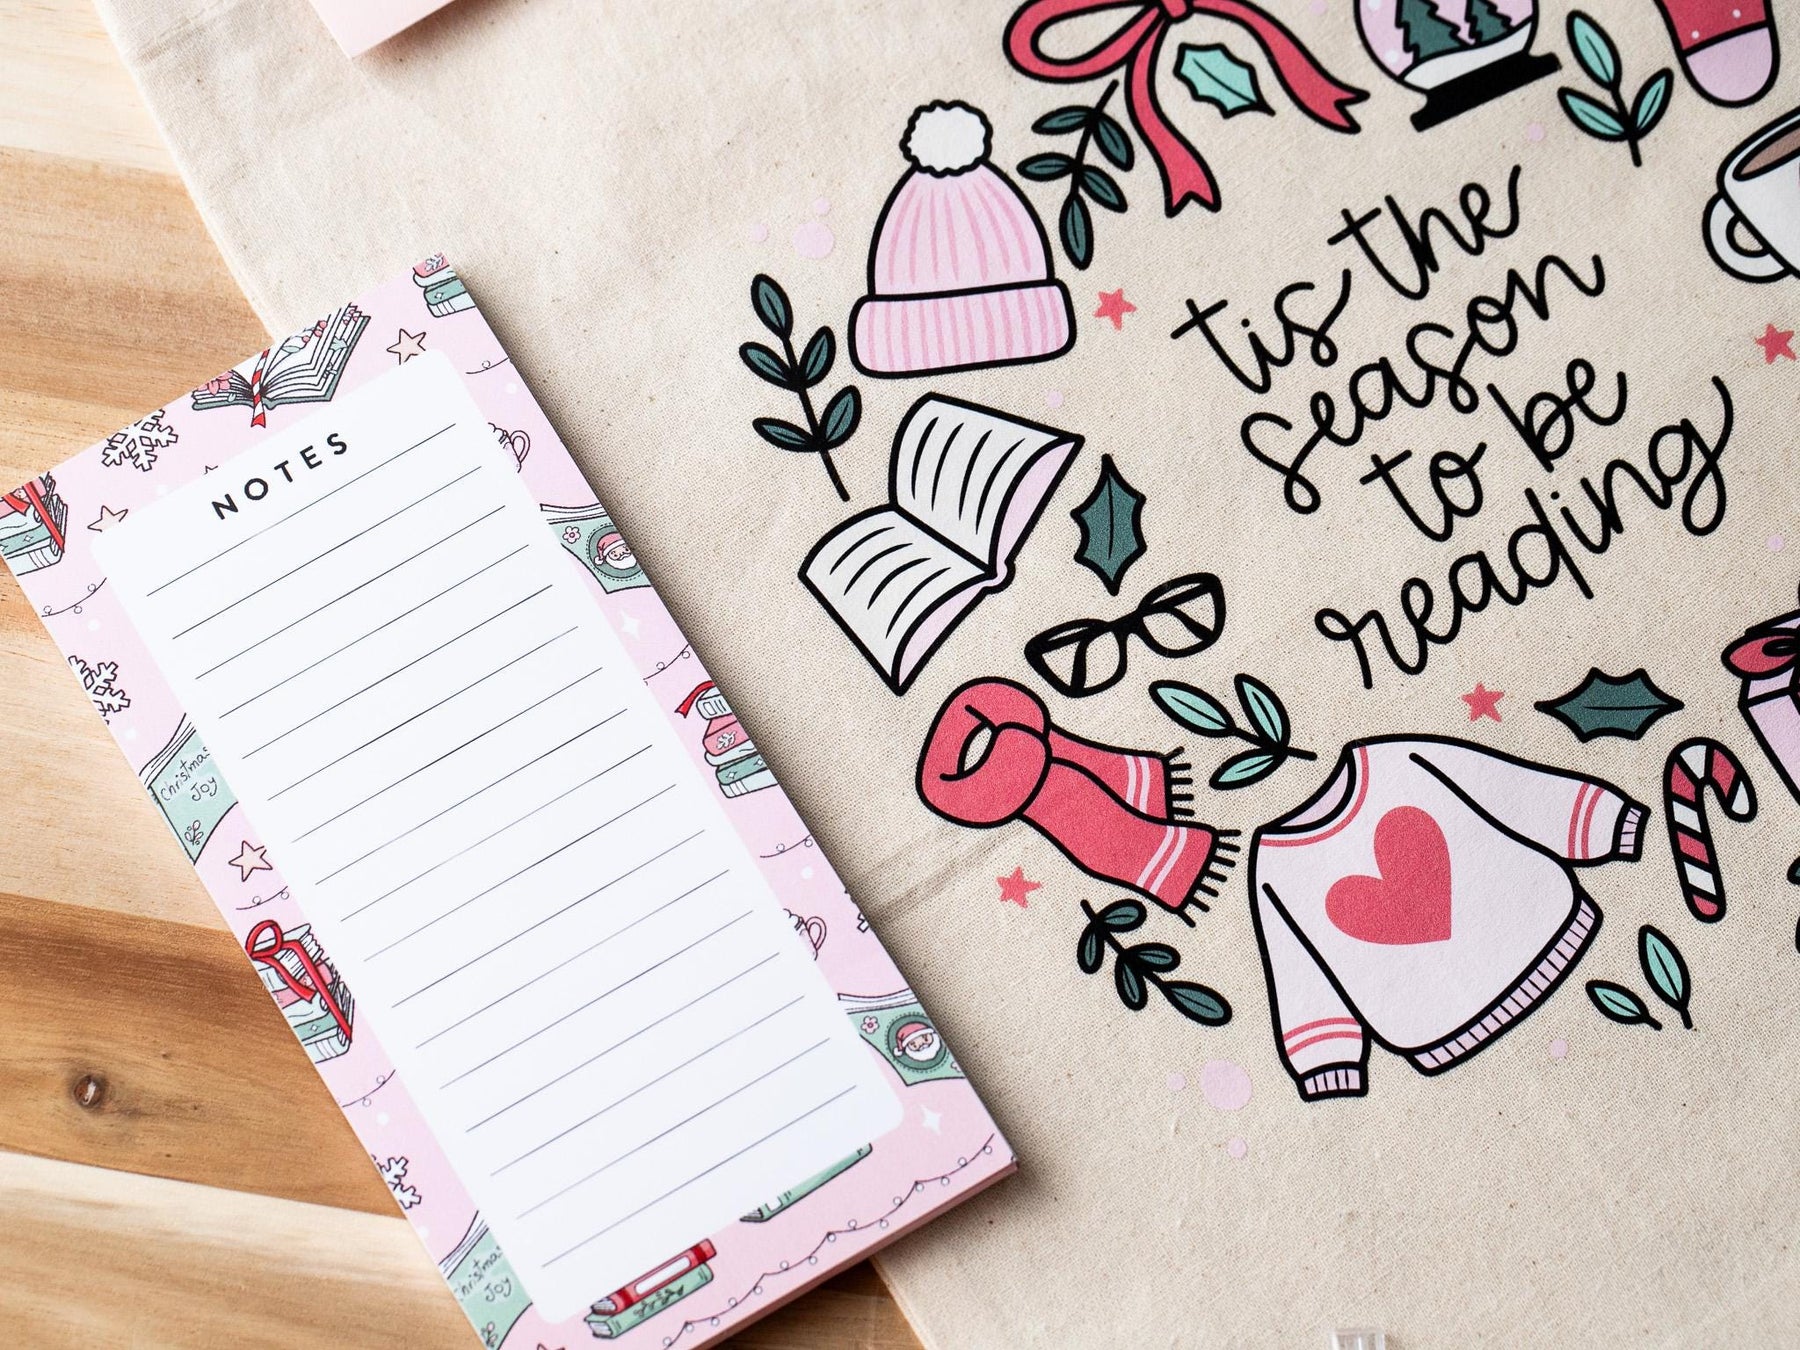 NOTES
Christmas
Joy
Christmas
Joy
tis the
season
to be
reading